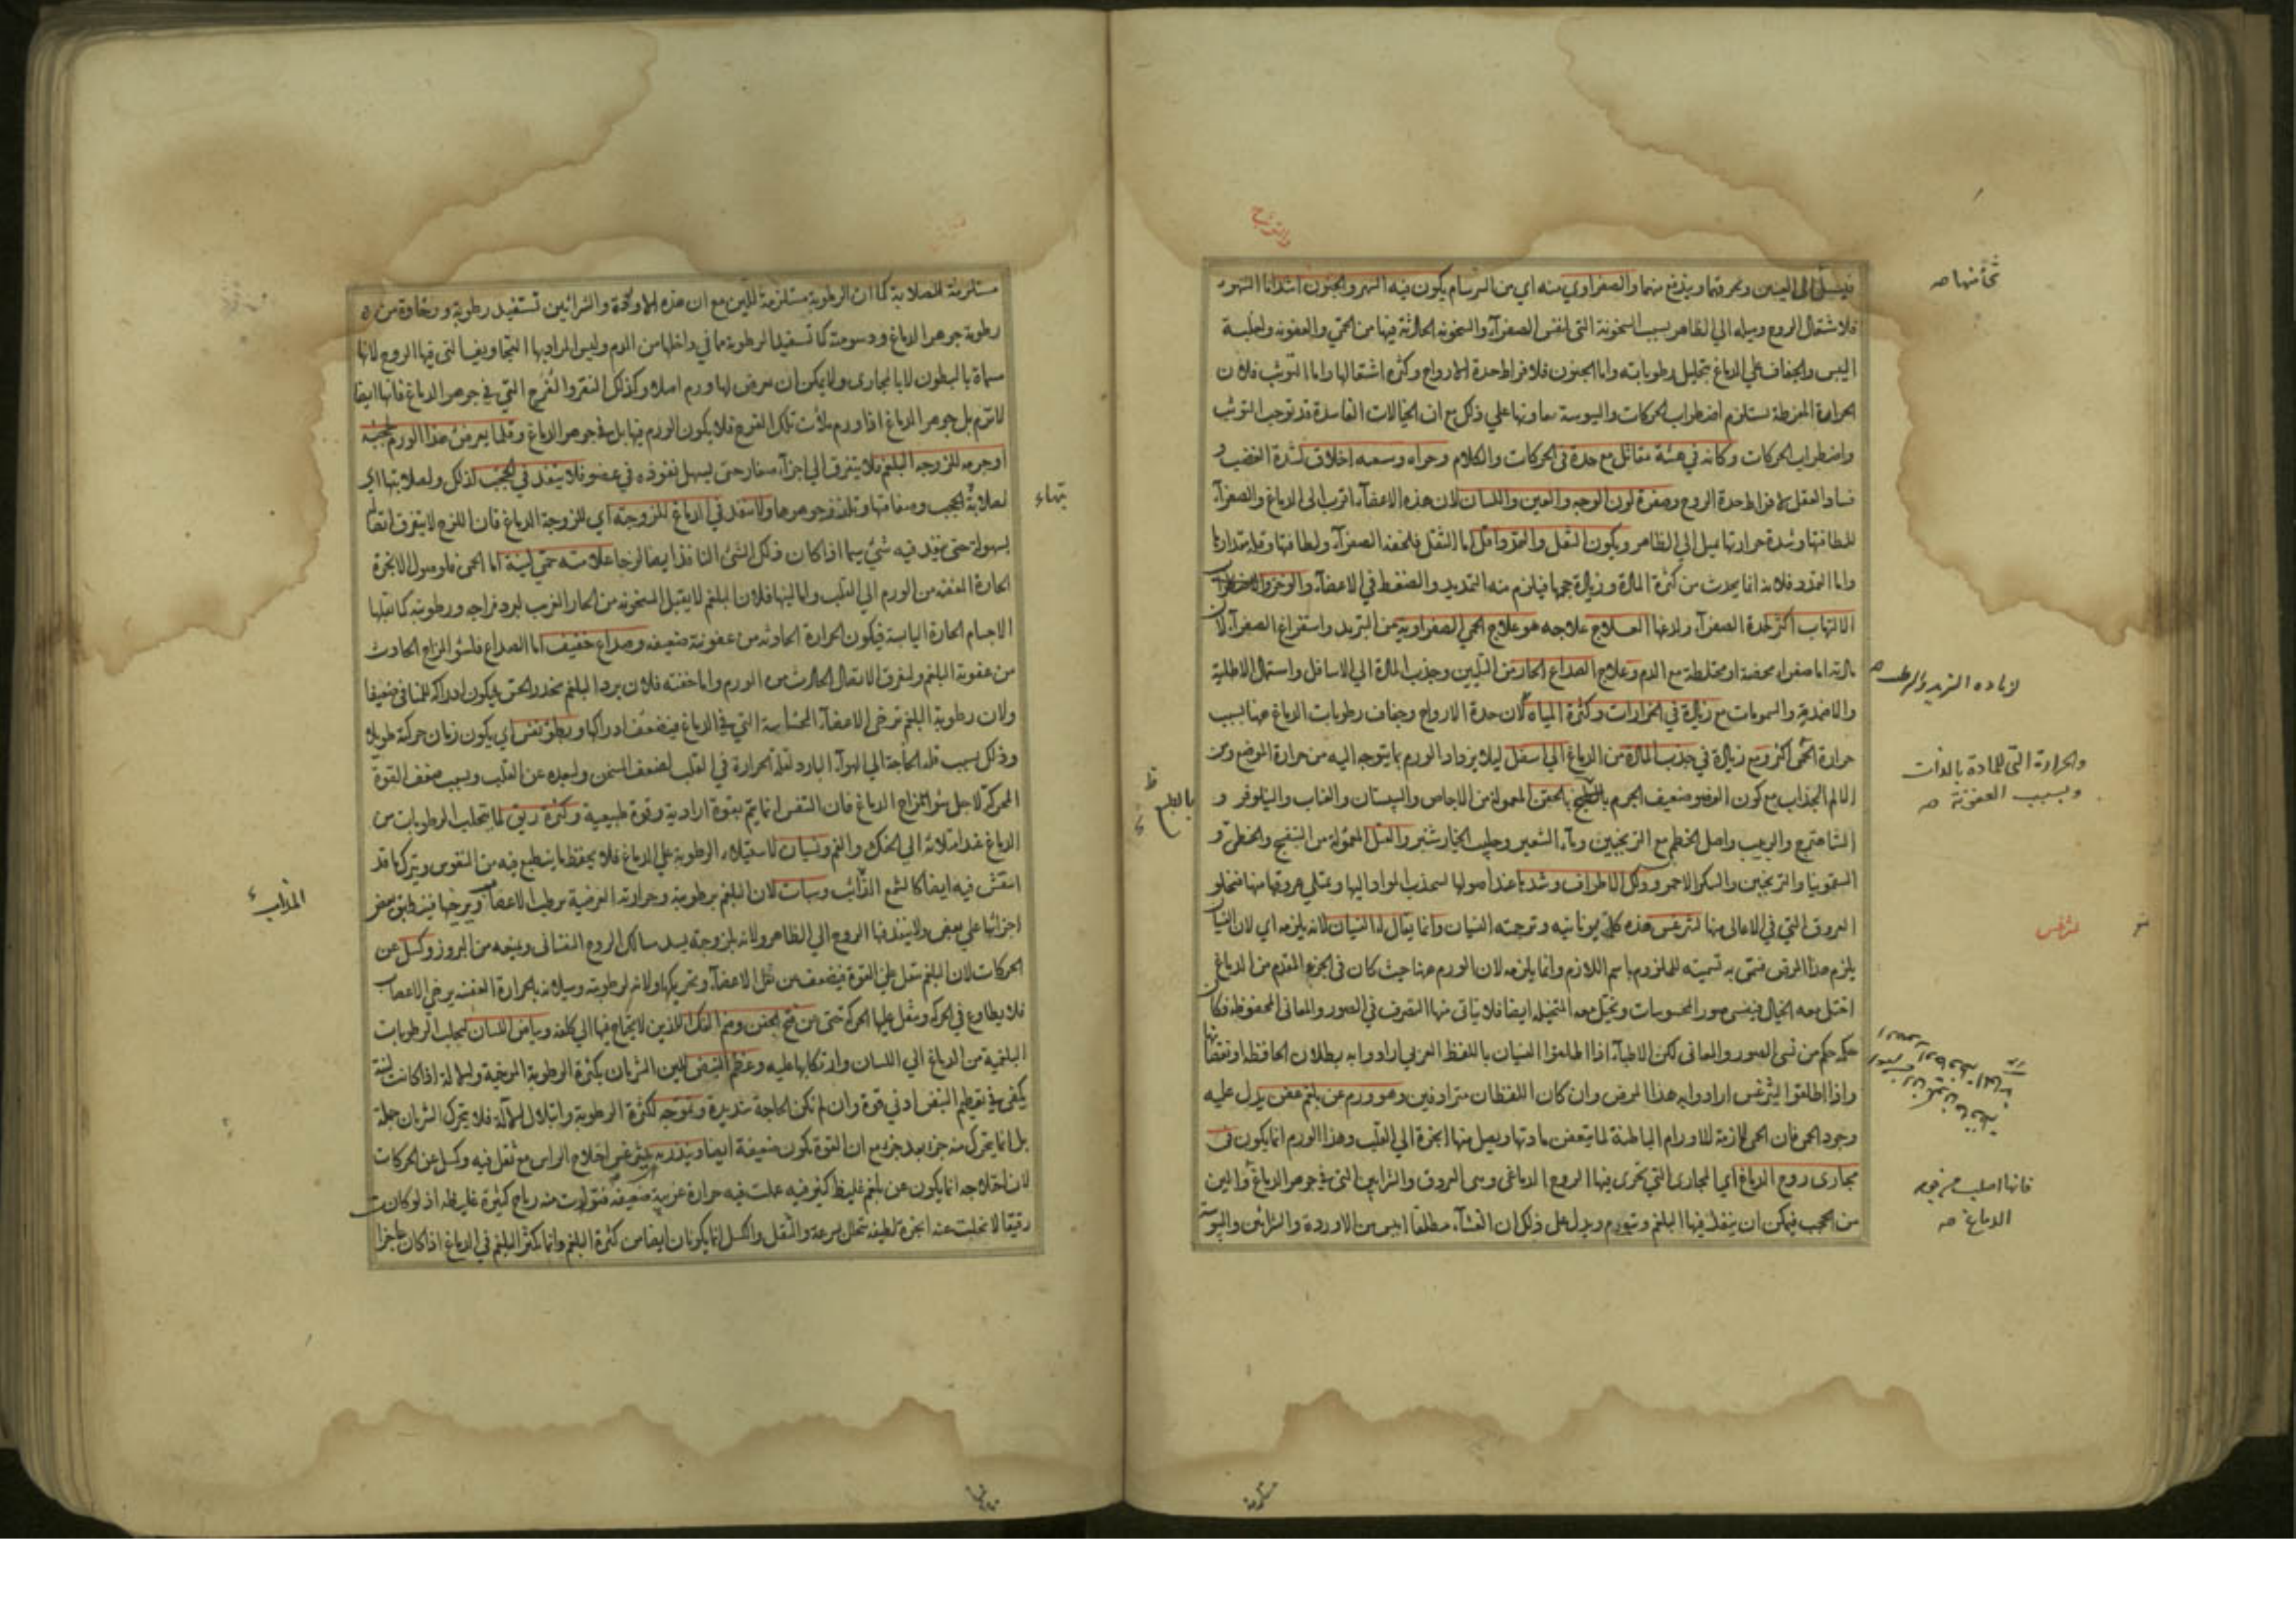 فيسيل الى العينين ويحرقهما ويندفع منهما والصفراوي منه اي من السرسام يكون فيه السهر والجنون اشد اما السهر
فلاشتعال الروح وميله الي الظاهر بسبب السخونة التى لنفس الصفرآء والسخونة الحادثة فيها من الحمى والعفونة ولغلبة
اليبس والجفاف على الدماغ بتحليل رطوباته واما الجنون فلافراط حدة الارواح وكثرة اشتعالها واما التوثب فلان
الحرارة المفرطة تستلزم اضطراب الحركات واليبوسة تعاونها علي ذلك مع ان الخيالات الفاسدة قد توجب التوثب
واضطراب الحركات وكانه في هيئة مقاتل مع حدة في الحركات والكلام وجراه وسعه اخلاق لشدة الغضب و
فساد العقل لافراط حدة الروح وصفرة لون الوجه والعين واللسان لان هذه الاعضآء اقرب الى الدماغ والصفرآء
للطافتها وشدة حرارتها تميل الي الظاهر ويكون الثقل والتمدد اقل اما الثقل فلخفة الصفرآء ولطافتها وقلة مقدارها
واما التمدد فلانه انما يحدث من كثرة المادة وزيادة حجمها فيلزم منه التمديد والضغط في الاعضآء والوخز
الالتهاب اكثر لحدة الصفرآء ولذعها العلاج علاجه هو علاج الحمى الصفراوية من التبريد واستفراغ الصفرآء لان
مادته اما صفراء محضة او مختلطة مع الدم وعلاج الصداع الحار من التليين وجذب المادة الي الاسافل واستعمال الاطلية
والاضمدة والشمومات مع زيادة في المبردات وكثرة المياه لان حدة الارواح وجفاف رطوبات الدماغ هنا بسبب
حرارة الحمى اكثر ومع زيادة في جذب المادة من الدماغ الي اسفل ليلا يزداد الورم بما يتوجه اليه من حرارة الموضع ومن
الالم الجذاب مع كون العضو ضعيف الجرم بالحقن المعمولة من الاجاص والسپستان والعناب والنيلوفر و
الشاهترج والزبيب واصل الخطمى مع الترنجبين ومآء الشعير وحليب الخيارشنبر والفتل المعمولة من البنفسج والخطمى و
السقمونيا والترنجبين والسكر الاحمر ودلك الاطراف وشدها عند اصولها لتجذب المواد اليها ويمتلي عروقها منها فتخلو
العروق التي في الاعالى منها ليثرغس هذه كلمة يونانيه وترجمته النسيان وانما يقال له النسيان لانه يلزمه اي لان النسيان
يلزم هذا المرض فسمى به تسمية للملزوم باسم اللازم وانما يلزمه لان الورم هنا حيث كان في الجزء المقدم من الدماغ
اختل معه الخيال فينسى صور المحسوسات ويختل معه المتخيله ايضا فلا يتاتى منها التصرف في الصور والمعانى المحفوظة فكان
حكمه حكم من نسى الصور والمعانى لكن الاطبآء اذا اطلقوا النسيان باللفظ العربى ارادوا به بطلان الحافظة او نقصانها
واذا اطلقوا ليثرغس ارادوا به هذا المرض وان كان اللفظان مترادفين وهو ورم عن بلغم عفن يدل عليه
وجود الحمى فان الحمى لازمة للاورام الباطنة لما يتعفن مادتها ويصل منها ابخرة الي القلب وهذا الورم انما يكون فى
مجارى روح الدماغ اي المجارى التي يجرى فيها الروح الدماغى وهى العروق والشرايين التي في جوهر الدماغ والين
من الحجب فيمكن ان ينفذ فيها البلغم وتتورم ويدل على ذلك ان الغشآء مطلقا ايبس من الاوردة والشرائين واليبوسة
لزيادة التبريد والترطيب صه
والحرارة التى للمادة بالذات
وبسبب العفونة صه
ليثرغس
فانها اصلب من جوهر
الدماغ صه
مستلزمة
مستلزمة للصلابة كما ان الرطوبة مستلزمة للين مع ان هذه الاوردة والشرائين تستفيد رطوبة ورخاوة من
رطوبة جوهر الدماغ ودسومته كما تستفيد الرطوبة مما في داخلها من الدم وليس المراد بها التجاويف التى فيها الروح لانها
مسماة بالبطون لا بالمجارى ولا يمكن ان يعرض لها ورم اصلا وكذلك النقر والفرج التي في جوهر الدماغ فانها ايضا
لا تتورم بل جوهر الدماغ اذا ورم ملأت تلك الفرج فلا يكون الورم فيها بل في جوهر الدماغ وقلما يعرض هذا الورم لحجبه
او جرمه للزوجة البلغم فلا يتفرق الي اجزآء صغار حتى يسهل نفوذه في عضو فلا ينفذ في الحجب لذلك ولصلابتها اي
لصلابة الحجب وصفاقتها وتلزز جوهرها ولا ينفذ في الدماغ للزوجته اي للزوجة الدماغ فان اللزج لا يتفرق اتصاله
بسهولة حتى ينفذ فيه شيئ سيما اذا كان ذلك الشئ النافذ ايضا لزجا علامته حمى لينة اما الحمى فلوصول الابخرة
الحارة العفنة من الورم الي القلب واما لينها فلان البلغم لا يقبل السخونة من الحار الغريب لبرد مزاجه ورطوبته كما تقبلها
الاجسام الحارة اليابسة فيكون الحرارة الحادثة من عفونته ضعيفة وصداع خفيف اما الصداع فلسؤ المزاج الحادث
من عفونة البلغم ولتفرق الاتصال الحادث من الورم واما خفته فلان برد البلغم يخدر الحس فيكون ادراكه للمنافى ضعيفا
ولان رطوبة البلغم ترخى الاعضآء الحساسة التي في الدماغ فيضعف ادراكها وبطؤ نفس اي يكون زمان حركته طويلا
وذلك بسبب قلة الحاجة الي الهوآء البارد لقلة الحرارة في القلب لضعف المسخن ولبعده عن القلب وبسبب ضعف القوة
المحركة لاجل سوء المزاج الدماغ فان التنفس انما يتم بقوة ارادية وقوة طبيعية وكثرة ريق لما يتحلب الرطوبات من
الدماغ عند امتلائه الي الحنك والفم ونسيان لاستيلاء الرطوبة على الدماغ فلا يحفظ ما ينطبع فيه من النقوش ويترك ما قد
انتقش فيه ايضا كالشمع الذائب وسبات لان البلغم برطوبته وحرارته العرضية يرطب الاعصاب ويرخيها فينطبق بعض
اجزائها علي بعض ولا ينفذ فيها الروح الي الظاهر ولانه بلزوجته يسد مسالك الروح النفسانى ويمنعه من البروز وكسل عن
الحركات لان البلغم يثقل على القوة فيضعف عن نقل الاعضآء وتحريكها ولانه لرطوبته وسيلانه بالحرارة العفنة يرخي الاعصاب
فلا يطاوع في الحركة ويثقل عليها الحركة حتى من فتح الجفن وضم الفك اللذين لا يحتاج فيها الي كلفة وبياض اللسان لتحلب الرطوبات
البلغمية من الدماغ الي اللسان وارتكابها عليه وعظم النبض للين الشريان بكثرة الرطوبة المرخية والالة اذا كانت لينة
يكفى في تعظيم النبض ادنى قوة وان لم تكن الحاجة شديدة وتموجه لكثرة الرطوبة وابتلال الآلة فلا يتحرك الشريان جملة
بل انما يتحرك منه جزء بعد جزء مع ان القوة تكون ضعيفة ايضا وينذر بليثرغس اختلاج الراس مع ثقل فيه وكسل عن الحركات
لان اختلاجه انما يكون عن بلغم غليظ كثير فيه عملت فيه حرارة غريبة ضعيفة فتولدت منه رياح كثيرة غليظة اذ لو كانت
رقيقا لانحلت عنه ابخرة لطيفة تتحلل بسرعة والثقل والكسل انما يكونان ايضا من كثرة البلغم وانما يكثر البلغم في الدماغ اذا كان عاجزا